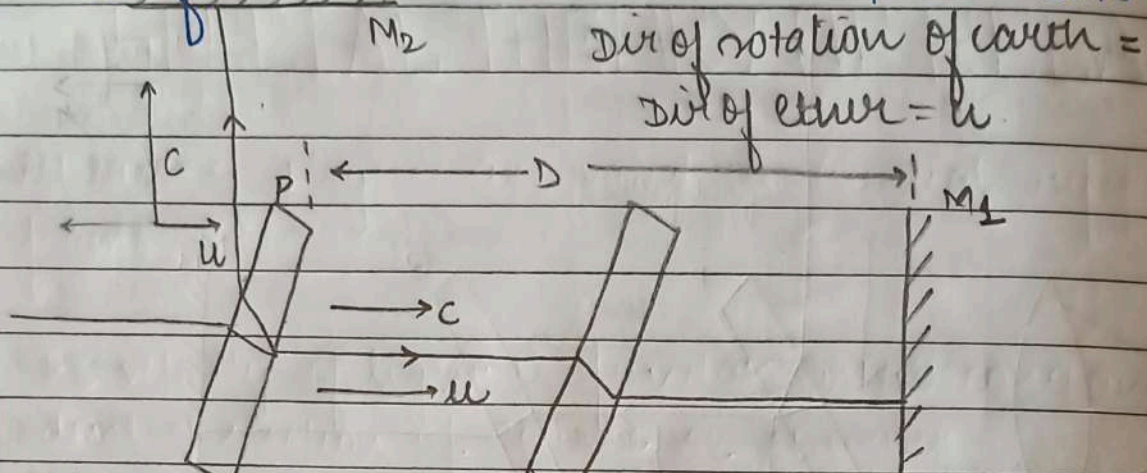 D
M2
Dir of rotation of earth =
Dir of ether = u
C
P
D
M1
u
→c
→u